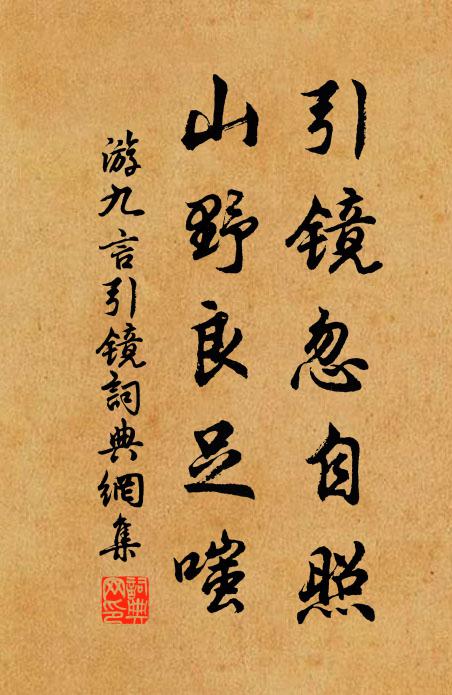 引镜忽自照
山野良足嗤
游九言引镜詞典網集
詞典網印